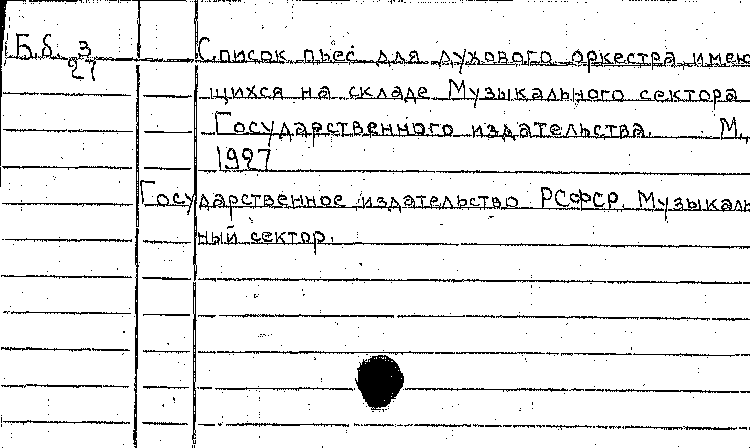 Б.б. 3/27
Список пьес для духового оркестра имею
щихся на складе Музыкального сектора
Государственного издательства. М.,
1927
Государственное издательство РСФСР. Музыкаль
ный сектор.